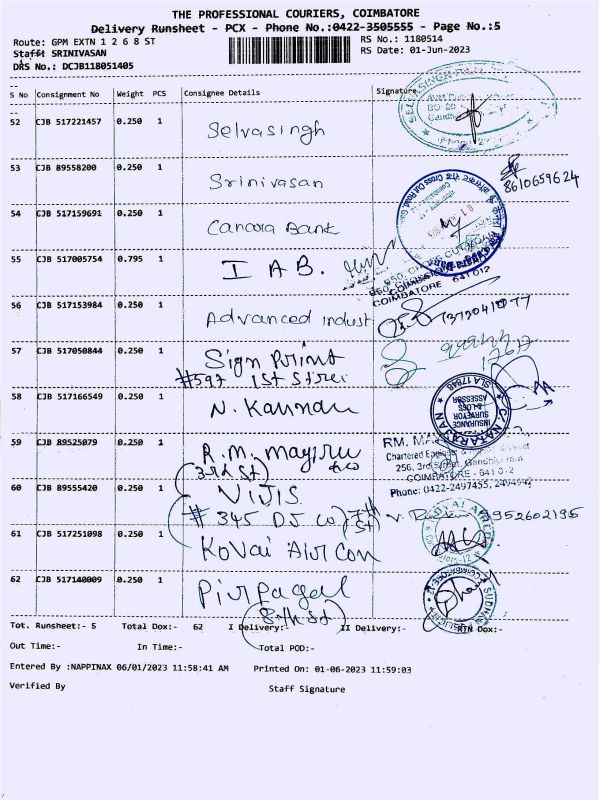 THE PROFESSIONAL COURIERS, COIMBATORE
Delivery Runsheet - PCX - Phone No.:0422-3505555 - Page No.:5
Route: GPM EXTN 1 2 6 8 ST
RS No.: 1180514
Staff: SRINIVASAN
RS Date: 01-Jun-2023
DRS No.: DCJB118051405
S No Consignment No Weight PCS Consignee Details Signature
52 CJB 517221457 0.250 1 Selvasingh
53 CJB 89558200 0.250 1 Srinivasan 8610659624
54 CJB 517159691 0.250 1 Canara Bank
55 CJB 517005754 0.795 1 I A B.
COIMBATORE 641 012
56 CJB 517153984 0.250 1 Advanced Indust
57 CJB 517050844 0.250 1 Sign Print
#597 1st Stree
58 CJB 517166549 0.250 1 N. Kannan
C. NATARAJAN
INSURANCE
SURVEYOR
& LOSS
ASSESSOR
SLA 17848
59 CJB 89525079 0.250 1 R.M.
(3rd St)
RM.
Chartered
256, 3rd Street,
COIMBATORE - 641 012
Phone: 0422-2497455,
60 CJB 89555420 0.250 1 VIJIS
# 345 DJ Co 7th St 9952602195
61 CJB 517251098 0.250 1 Kovai Air Con
62 CJB 517140009 0.250 1 Pirpagal
(8th St)
Tot. Runsheet:- 5 Total Dox:- 62 I Delivery:- II Delivery:- RTN Dox:-
Out Time:- In Time:- Total POD:-
Entered By :NAPPINAX 06/01/2023 11:58:41 AM Printed On: 01-06-2023 11:59:03
Verified By Staff Signature